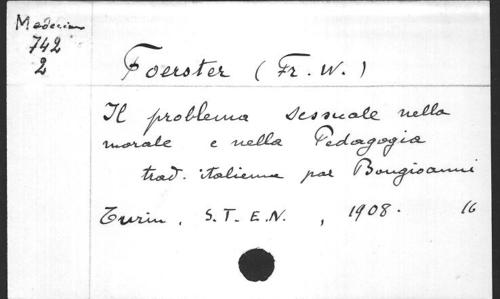 Medecine
742
2
Foerster (Fr. W.)
Il problema sessuale nella
morale e nella Pedagogia
trad. italienne par Bongioanni
Turin, S.T.E.N., 1908. 16